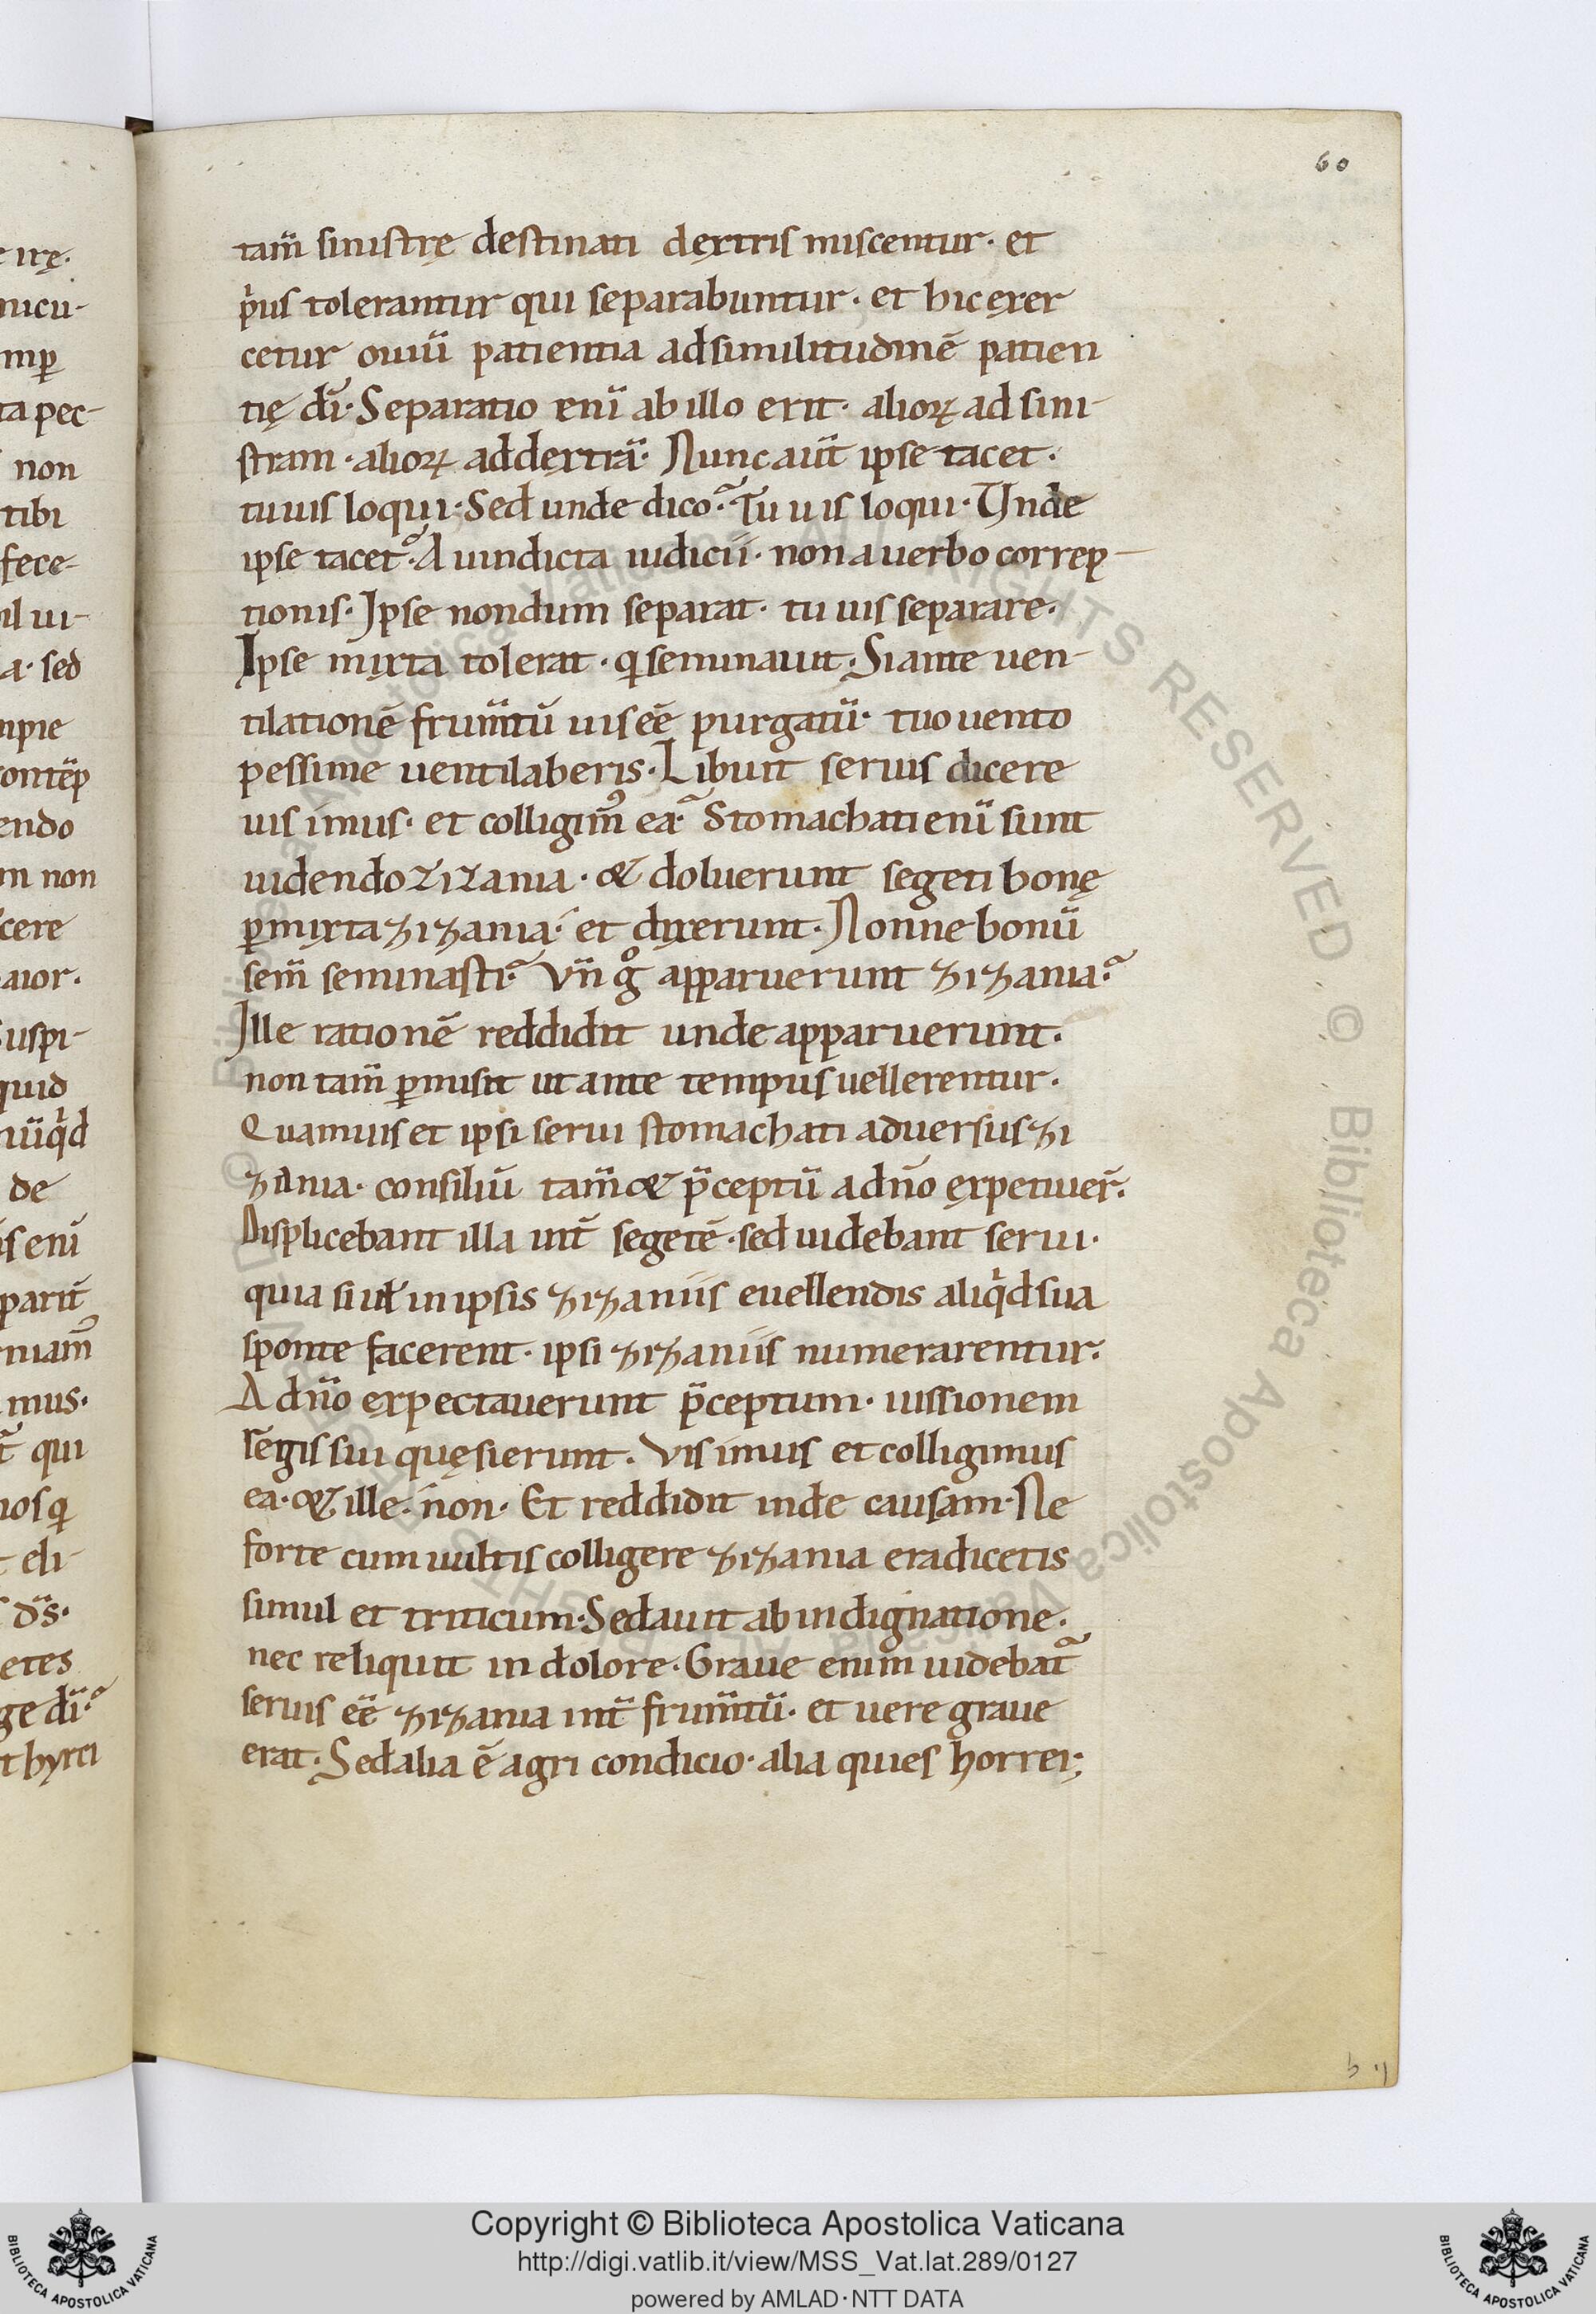 60
tam̄ sinistrę destinati dextris miscentur· et
p̍us tolerantur qui separabuntur· et hic exer
cetur ouiū patientia ad similitudinē patien
tię dī· Separatio eni̅ ab illo erit· alioꝝ ad sini-
stram· alioꝝ ad dextrā· Nunc aut̄ ipse tacet·
tu uis loqui· Sed unde dico? Tu uis loqui· Unde
ipse tacet? A uindicta iudicii· non a uerbo correp-
tionis· Ipse nondum separat· tu uis separare·
Ipse mixta tolerat· ꝗ seminauit· Si ante uen-
tilationē frum̄tū uis eē purgatū· tuo uento
pessime uentilaberis· Libuit seruis dicere
uis imus· et colligim᷒ ea? Stomachati eni̅ sunt
uidendo zizania· & doluerunt segeti bonę
ꝑmixta zizania· et dixerunt· Nonne bonū
sem̄ seminasti? Vn̄ gͦ apparuerunt zizania?
Ille rationē reddidit unde apparuerunt·
non tam̄ ꝑmisit ut ante tempus uellerentur·
Quamuis et ipsi serui stomachati aduersus zi
zania· consiliū tam̄ & p̄ceptū a dn̄o expetiuer̄·
Displicebant illa int̄ segetē· sed uidebant serui·
quia si uł in ipsis zizaniis euellendis aliq̍d sua
sponte facerent· ipsi zizaniis numerarentur·
A dn̄o expectauerunt p̄ceptum· iussionem
regis sui quęsierunt· Vis imus et colligimus
ea· & ille· non· Et reddidit inde causam· Ne
forte cum uultis colligere zizania eradicetis
simul et triticum· Sedauit ab indignatione·
nec reliquit in dolore· Graue enim uidebat᷑
seruis eē zizania int̄ frum̄tū· et uere graue
erat· Sed alia ē agri condicio· alia quies horrei;
b ij
Copyright © Biblioteca Apostolica Vaticana
http://digi.vatlib.it/view/MSS_Vat.lat.289/0127
powered by AMLAD·NTT DATA